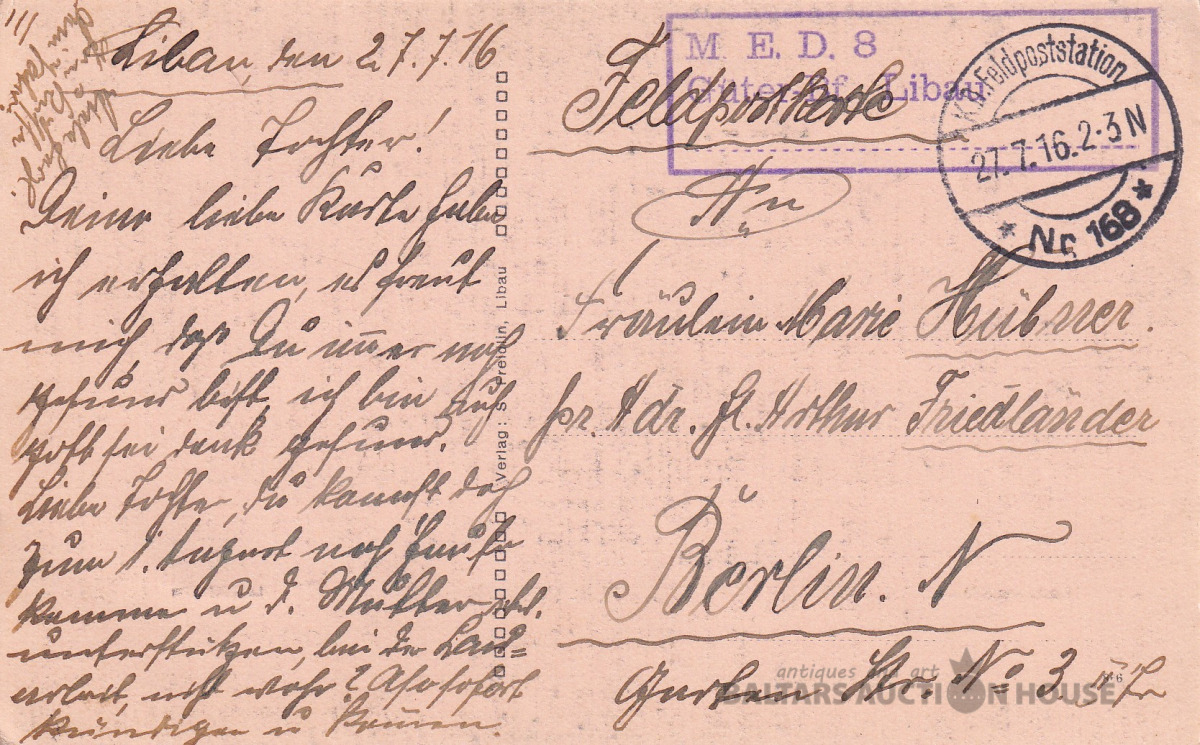 Libau, den 27.7.16
Liebe Tochter!
Deine liebe Karte habe
ich erhalten, es freut
mich, daß Du immer noch
gesund bist, ich bin auch
Gott sei dank gesund.
Liebe Tochter, du kannst doch
zum 1. August nach Hause
komme u. d. Mutter
unterstützen, bei der Land=
arbeit, nicht wahr? Also sofort
kündigen u. kommen.
Verlag: S. Libau
M. E. D. 8
Libau
Feldpostkarte
K.D.Feldpoststation
27.7.16.2-3N
* Nr. 168 *
An
Fräulein Marie Hübner.
pr. Adr. Arthur Friedländer
Berlin. N
Garten Str. No 3
antiques art
BALTARS AUCTION HOUSE